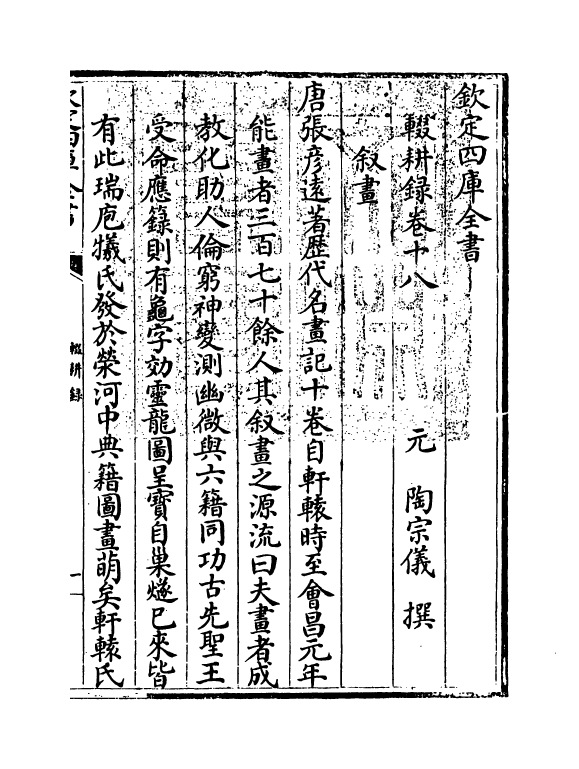 欽定四庫全書
輟耕録卷十八
元 陶宗儀 撰
叙畫
唐張彦逺著歴代名畫記十卷自軒轅時至會昌元年
能畫者三百七十餘人其叙畫之源流曰夫畫者成
教化助人倫窮神變測幽微與六籍同功古先聖王
受命應籙則有龜字効靈龍圖呈寶自巢燧已來皆
有此瑞庖犧氏發於滎河中典籍圖畫萌矣軒轅氏
輟耕録
一